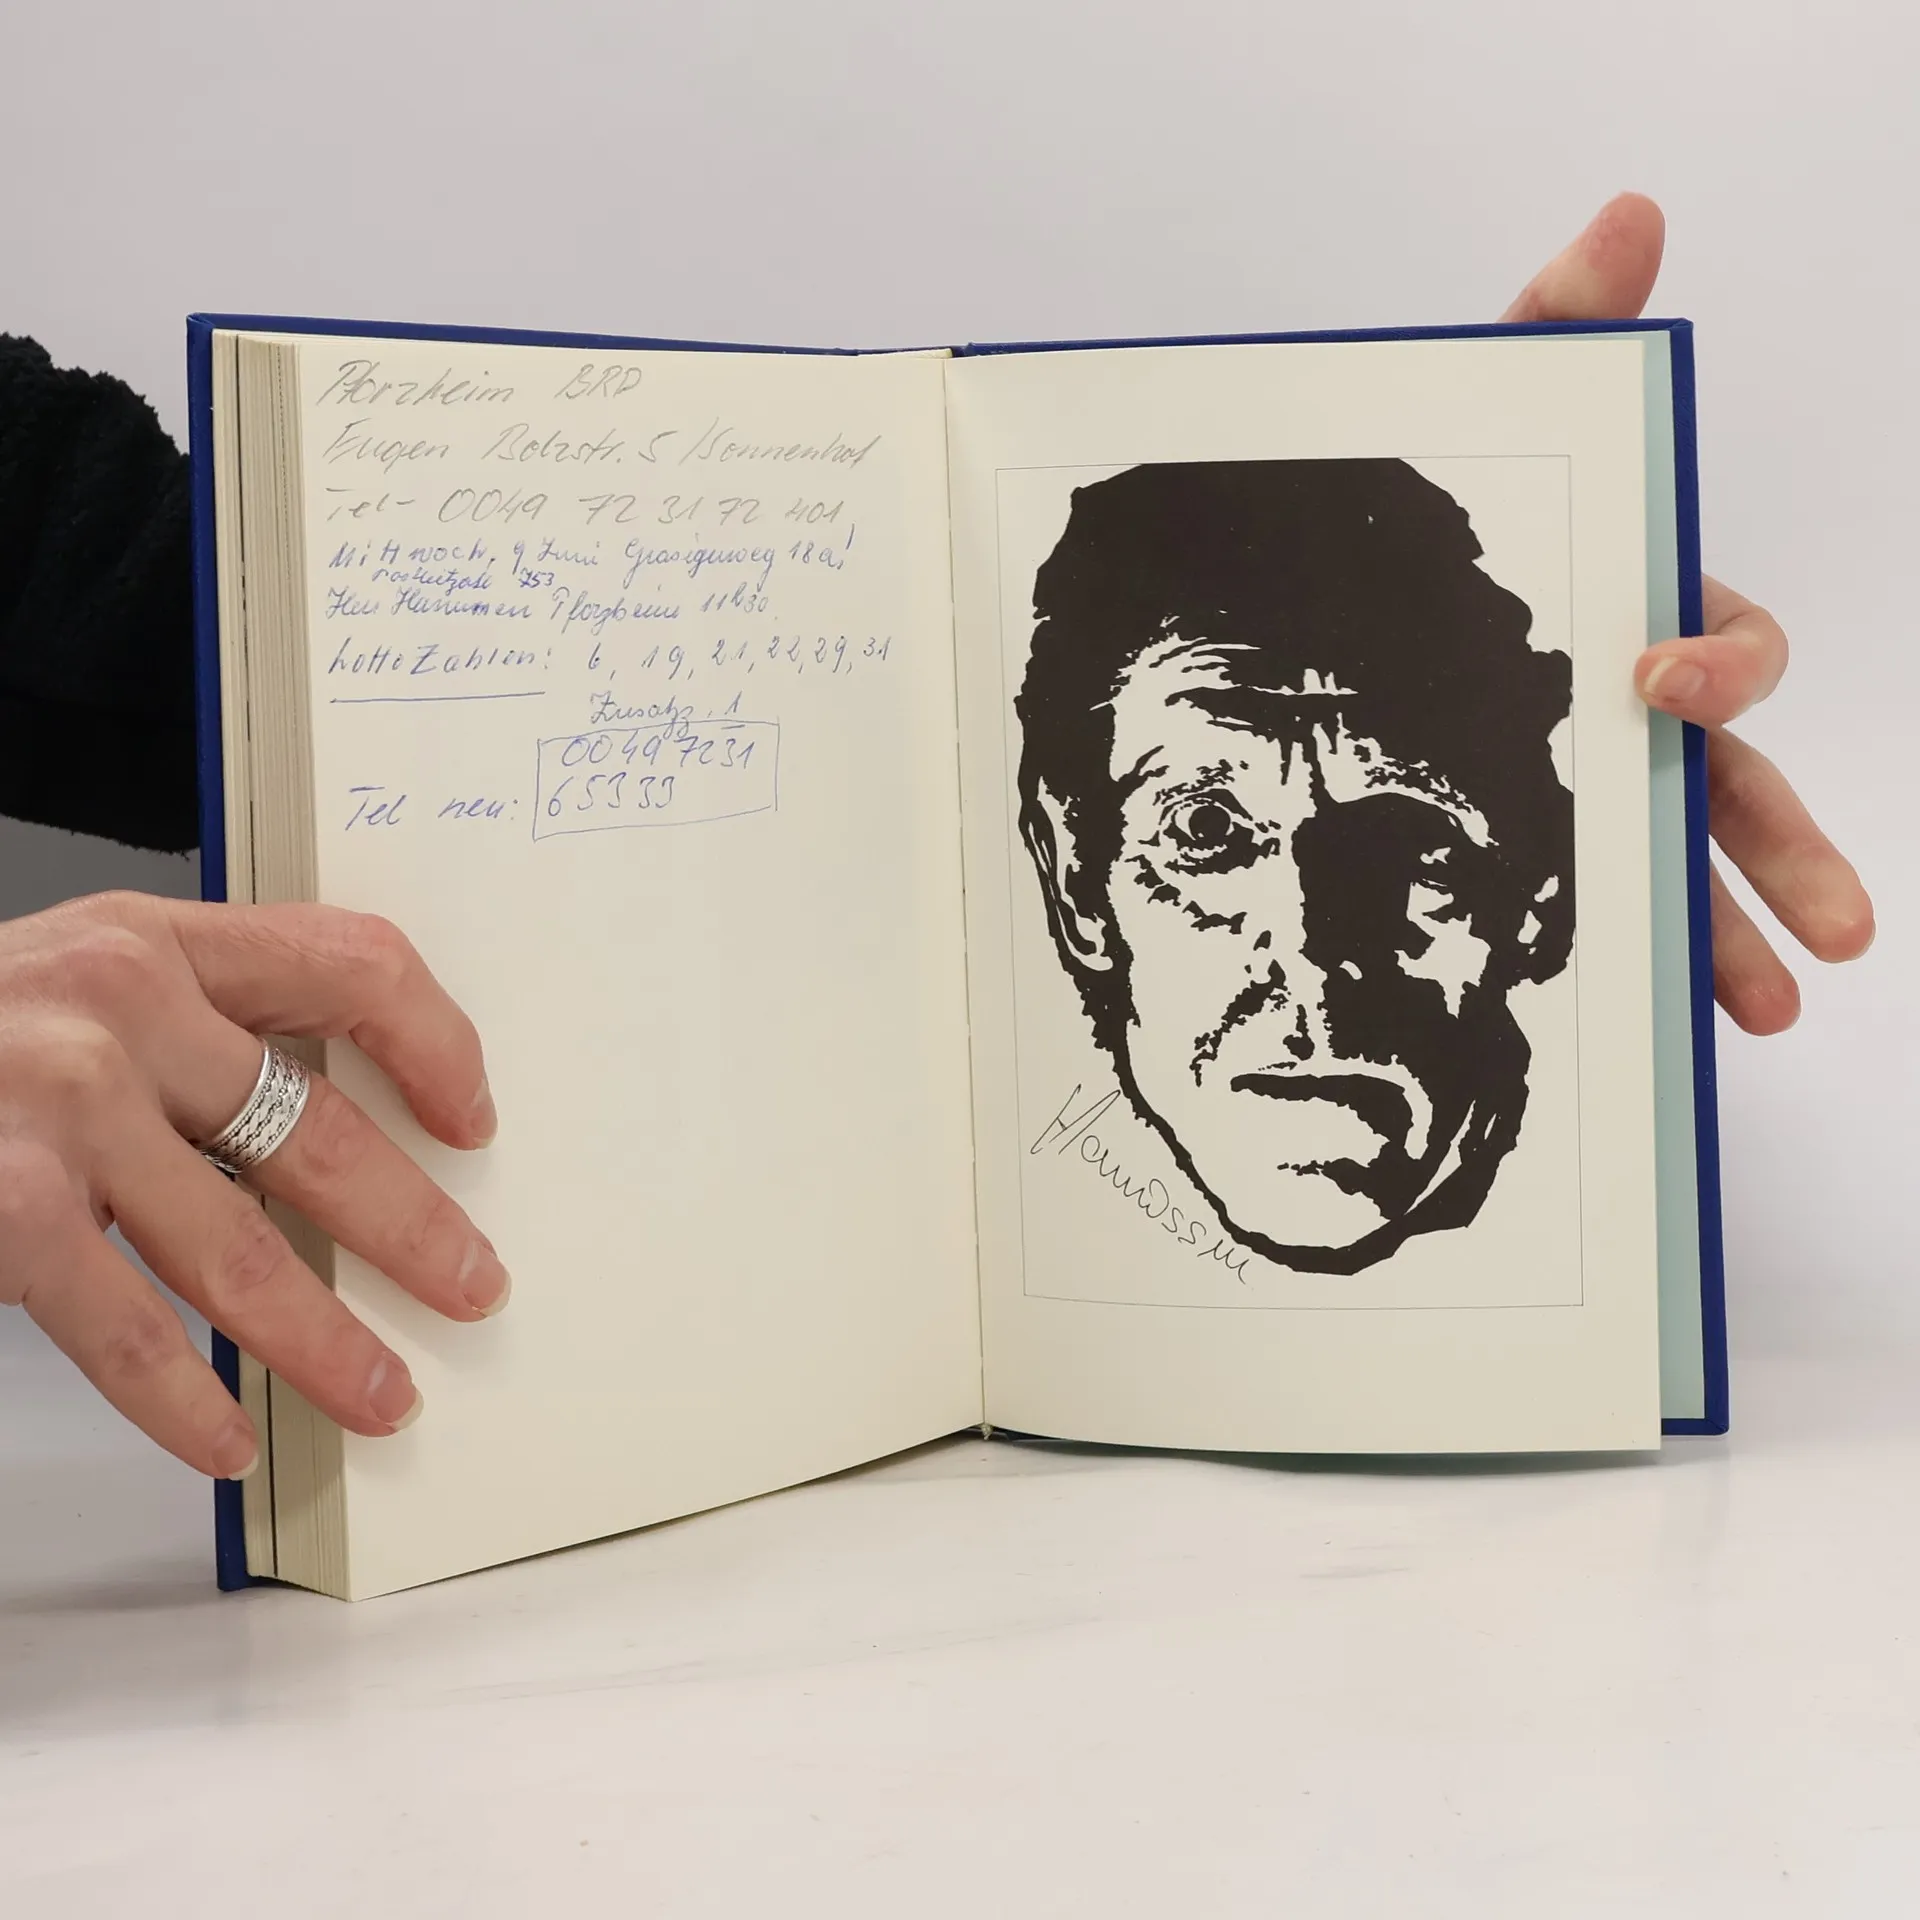 Pforzheim BRD
Eugen Bolzstr. 5 /Sonnenhof
Tel- 0049 72 31 72 401,
Mittwoch, 9 Juni 18a!
753
Pforzheim 11h30
Lotto Zahlen: 6, 19, 21, 22, 29, 31
Zusatz. 1
0049 7231
Tel neu: 65333